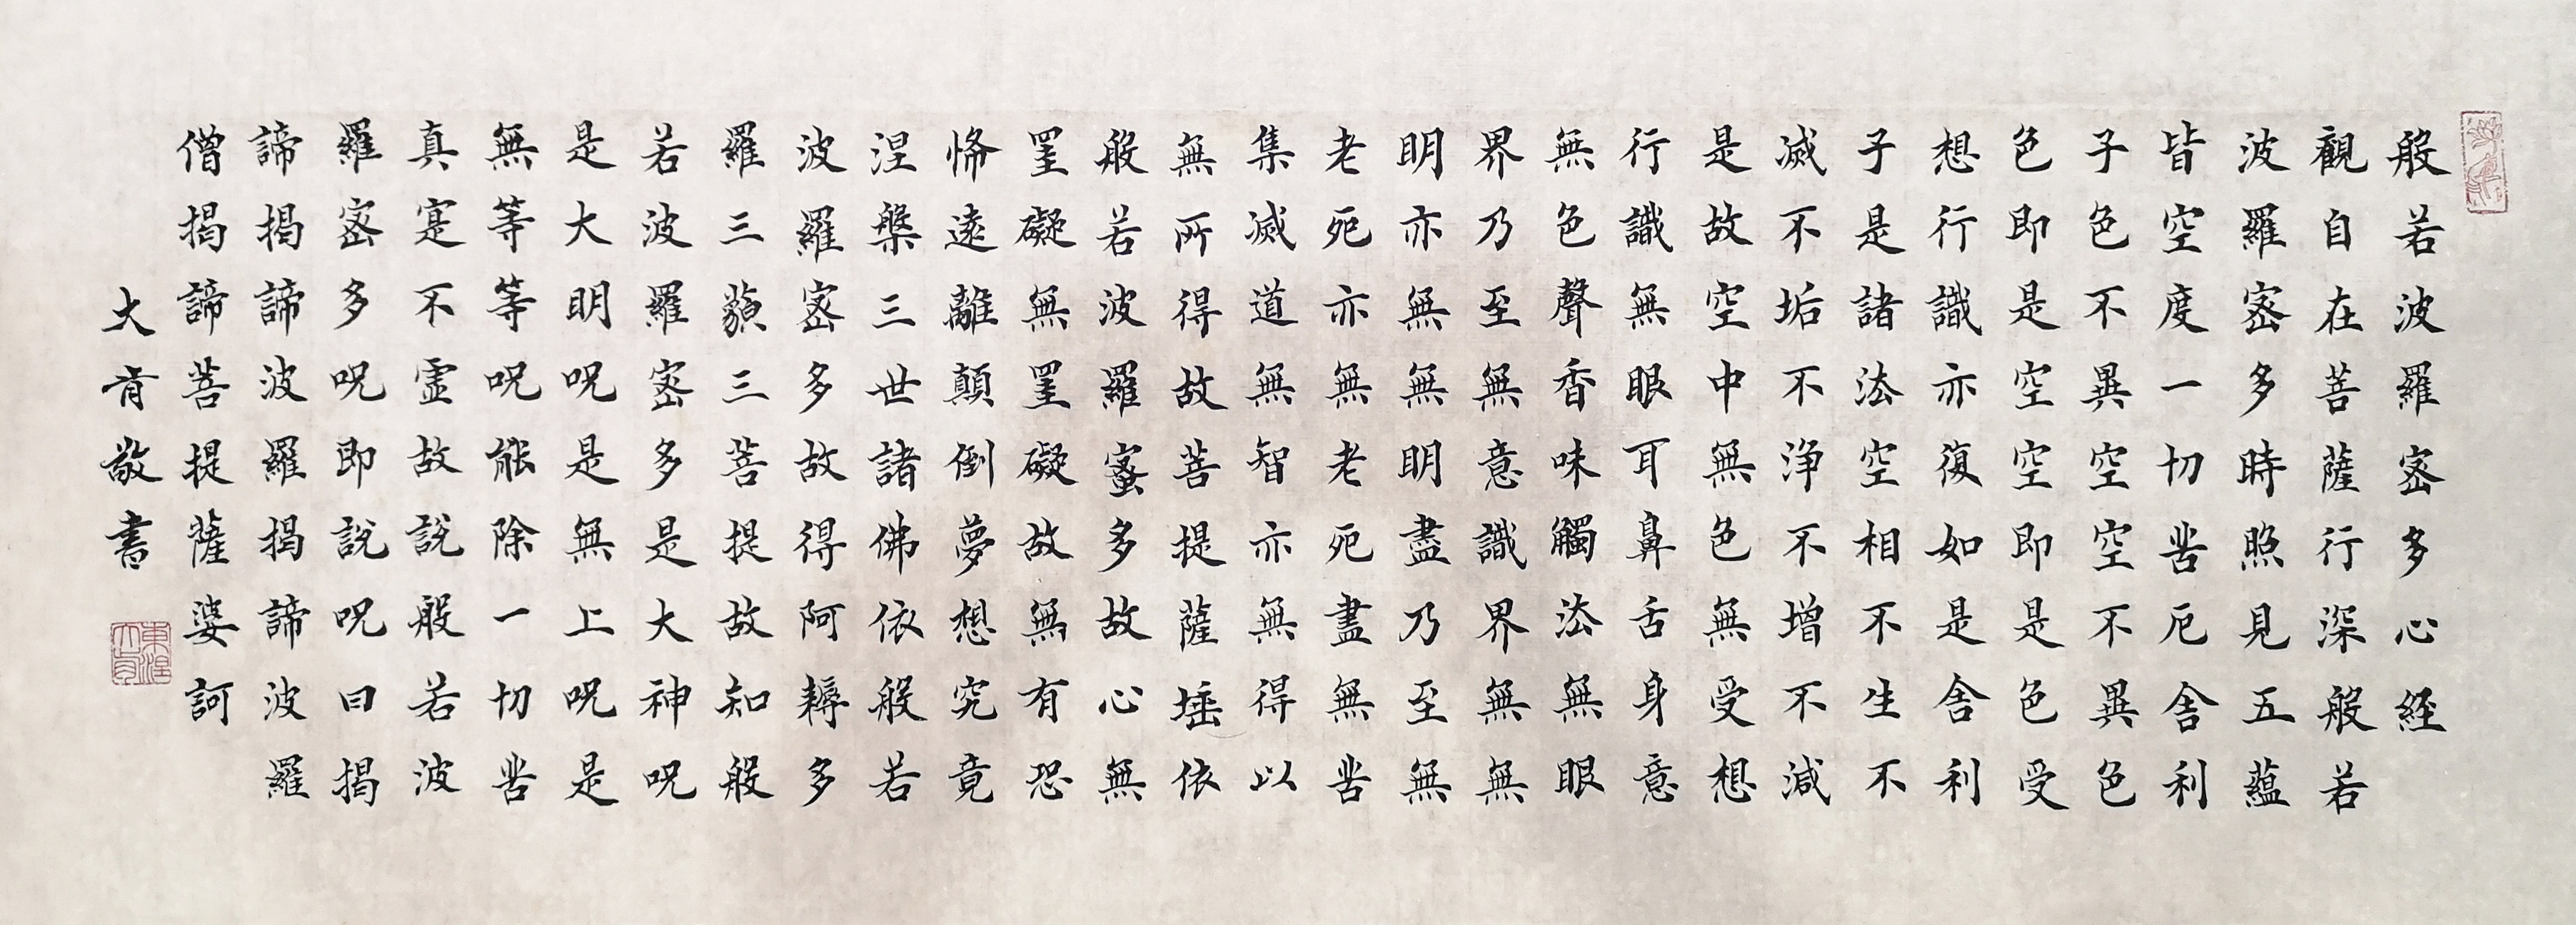 般若波羅密多心経
觀自在菩薩行深般若
波羅密多時照見五蘊
皆空度一切苦厄舍利
子色不異空空不異色
色即是空空即是色受
想行識亦復如是舍利
子是諸法空相不生不
滅不垢不浄不增不減
是故空中無色無受想
行識無眼耳鼻舌身意
無色聲香味觸法無眼
界乃至無意識界無無
明亦無無明盡乃至無
老死亦無老死盡無苦
集滅道無智亦無得以
無所得故菩提薩埵依
般若波羅蜜多故心無
罣礙無罣礙故無有恐
怖遠離顛倒夢想究竟
涅槃三世諸佛依般若
波羅密多故得阿耨多
羅三藐三菩提故知般
若波羅密多是大神呪
是大明呪是無上呪是
無等等呪能除一切苦
真寔不虛故說般若波
羅密多呪即說呪曰揭
諦揭諦波羅揭諦波羅
僧揭諦菩提薩婆訶
大肯敬書